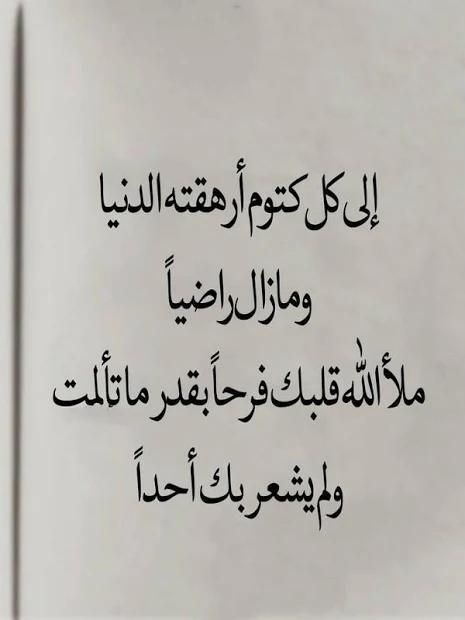 إلى كل كتوم أرهقته الدنيا
ومازال راضياً
ملأ الله قلبك فرحاً بقدر ما تألمت
ولم يشعر بك أحداً